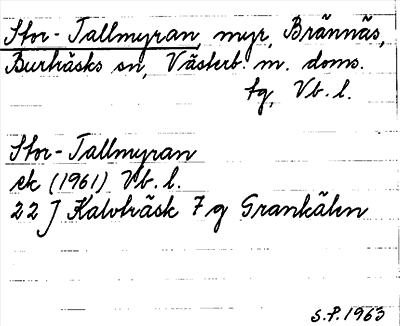 Stor-Tallmyran, myr, Brännäs,
Burträsks sn, Västerb. m. doms.
tg, Vb. l.
Stor-Tallmyran
ek (1961) Vb. l.
22 J Kalvträsk 7 g Grankälen
S.P. 1963